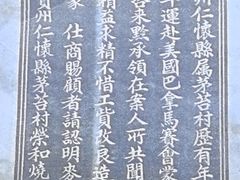 州仁懷縣属茅台村歷有年
年運赴美國巴拿馬賽會蒙
来黔承領在案人所共聞
精益求精不惜工貲改良造
家 仕商賜顧者請認明麥
貴州仁懷縣茅台村榮和燒